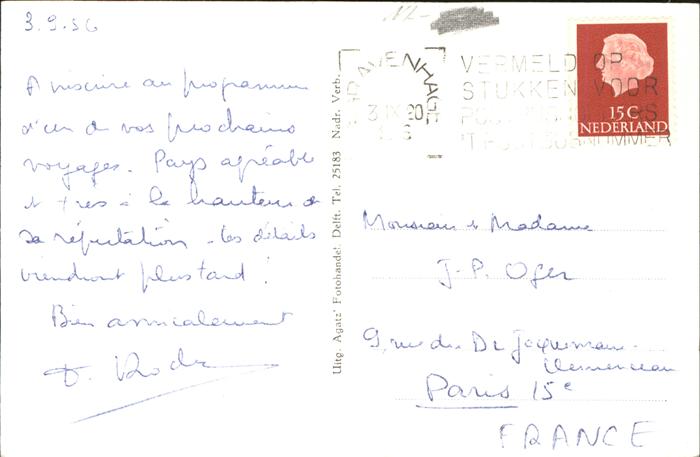 3.9.56
A inscrire au programme
d'un de vos prochains
voyages. Pays agréable
et très à la hauteur de
sa réputation. Les détails
viendront plus tard !
Bien amicalement
Uitg. Agatz' Fotohandel. Delft. Tel. 25183 Nadr. Verb.
'S GRAVENHAGE
3.IX 20
VERMELD OP
STUKKEN VOOR
'T POSTBUSNUMMER
15 C
NEDERLAND
Monsieur & Madame
J-P. Oger
9, rue du Dr Jacquemaire-
Clemenceau
Paris 15e
FRANCE